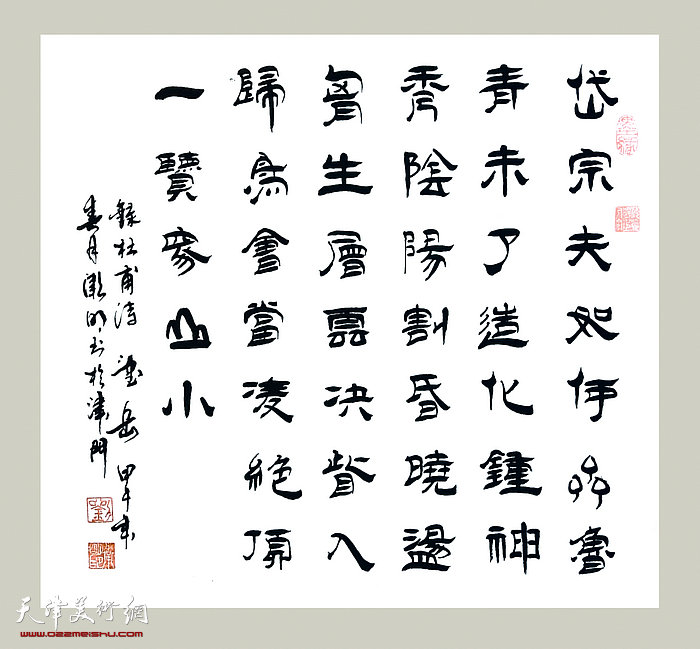 岱宗夫如何齊魯
青未了造化鍾神
秀陰陽割昏曉盪
胷生層雲决眥入
歸鳥會當凌絕頂
一覽衆山小
錄杜甫詩望岳甲午年
春月書於津門
天津美術網
www.022meishu.com